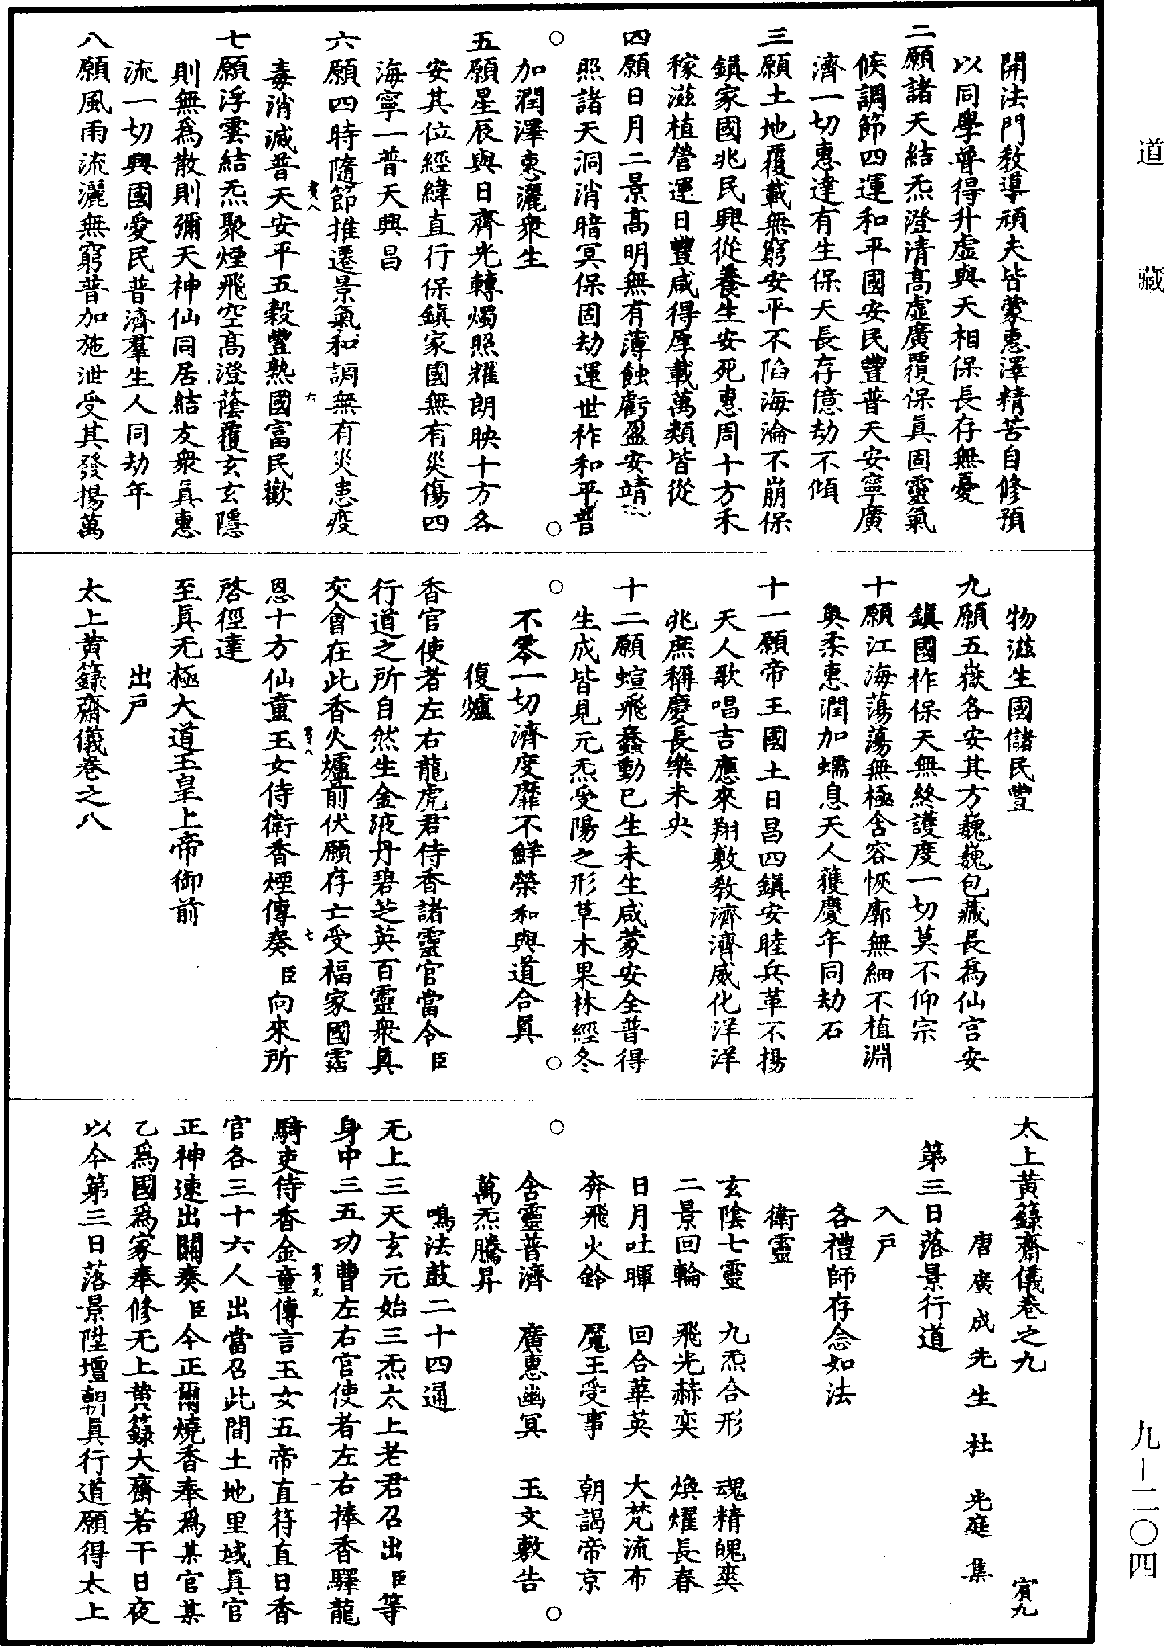 道藏
開法門教導頑夫皆蒙惠澤精苦自修預
以同學普得升虛與天相保長存無憂
二願諸天結炁澄清高虛廣覆保真固靈氣
候調節四運和平國安民豐普天安寧廣
濟一切惠達有生保天長存億劫不傾
三願土地覆載無窮安平不陷海淪不崩保
鎮家國兆民興從養生安死惠周十方禾
稼滋植營運日豐咸得厚載萬類皆從
四願日月二景高明無有薄蝕虧盈安靖
照諸天洞消暗冥保固劫運世祚和平普
加潤澤惠灑衆生
五願星辰與日齊光轉燭照耀朗映十方各
安其位經緯直行保鎮家國無有災傷四
海寧一普天興昌
六願四時隨節推遷景氣和調無有災患疫
賓八 六
毒消滅普天安平五穀豐熟國富民歡
七願浮雲結炁聚煙飛空高澄蔭覆玄玄隱
則無爲散則彌天神仙同居結友衆真惠
流一切興國愛民普濟羣生人同劫年
八願風雨流灑無窮普加施泄受其發揚萬
物滋生國儲民豐
九願五嶽各安其方巍巍包藏長爲仙宮安
鎮國祚保天無終護度一切莫不仰宗
十願江海蕩蕩無極含容恢廓無細不植淵
奧柔惠潤加蠕息天人獲慶年同劫石
十一願帝王國土日昌四鎮安睦兵革不揚
天人歌唱吉應來翔敷教濟濟威化洋洋
兆庶稱慶長樂未央
十二願蝖飛蠢動已生未生咸蒙安全普得
生成皆見元炁受陽之形草木果林經冬
不零一切濟度靡不鮮榮和與道合真
復爐
香官使者左右龍虎君侍香諸靈官當令臣
行道之所自然生金液丹碧芝英百靈衆真
交會在此香火爐前伏願存亡受福家國霑
賓八 七
恩十方仙童玉女侍衛香煙傳奏臣向來所
啓徑達
至真无極大道玉皇上帝御前
出戶
太上黃籙齋儀卷之八
太上黃籙齋儀卷之九 賓九
唐廣成先生杜光庭集
第三日落景行道
入戶
各禮師存念如法
衛靈
玄陰七靈 九炁合形 魂精魄爽
二景回輪 飛光赫奕 煥耀長春
日月吐暉 回合華英 大梵流布
奔飛火鈴 魔王受事 朝謁帝京
含靈普濟 廣惠幽冥 玉文敷告
萬炁騰昇
鳴法鼓二十四通
无上三天玄元始三炁太上老君召出臣等
身中三五功曹左右官使者左右捧香驛龍
賓九 一
騎吏侍香金童傳言玉女五帝直符直日香
官各三十六人出當召此間土地里域真官
正神速出關奏臣今正爾燒香奉爲某官某
乙爲國爲家奉修无上黃籙大齋若干日夜
以今第三日落景陞壇朝真行道願得太上
九—二〇四